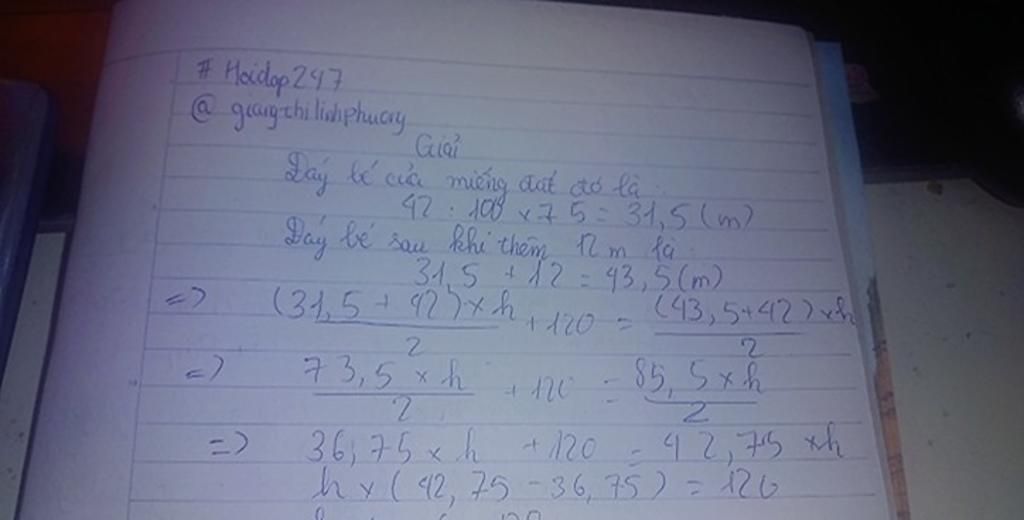 # Hoidap247
@ giangthilinhphuony
Giải
Đáy bé của miếng đất đó là :
42 : 100 x 75 = 31,5 (m)
Đáy bé sau khi thêm 12 m là :
31,5 + 12 = 43,5 (m)
=> (31,5 + 42) x h / 2 + 120 = (43,5 + 42) x h / 2
=> 73,5 x h / 2 + 120 = 85,5 x h / 2
=> 36,75 x h + 120 = 42,75 x h
h x (42,75 - 36,75) = 120